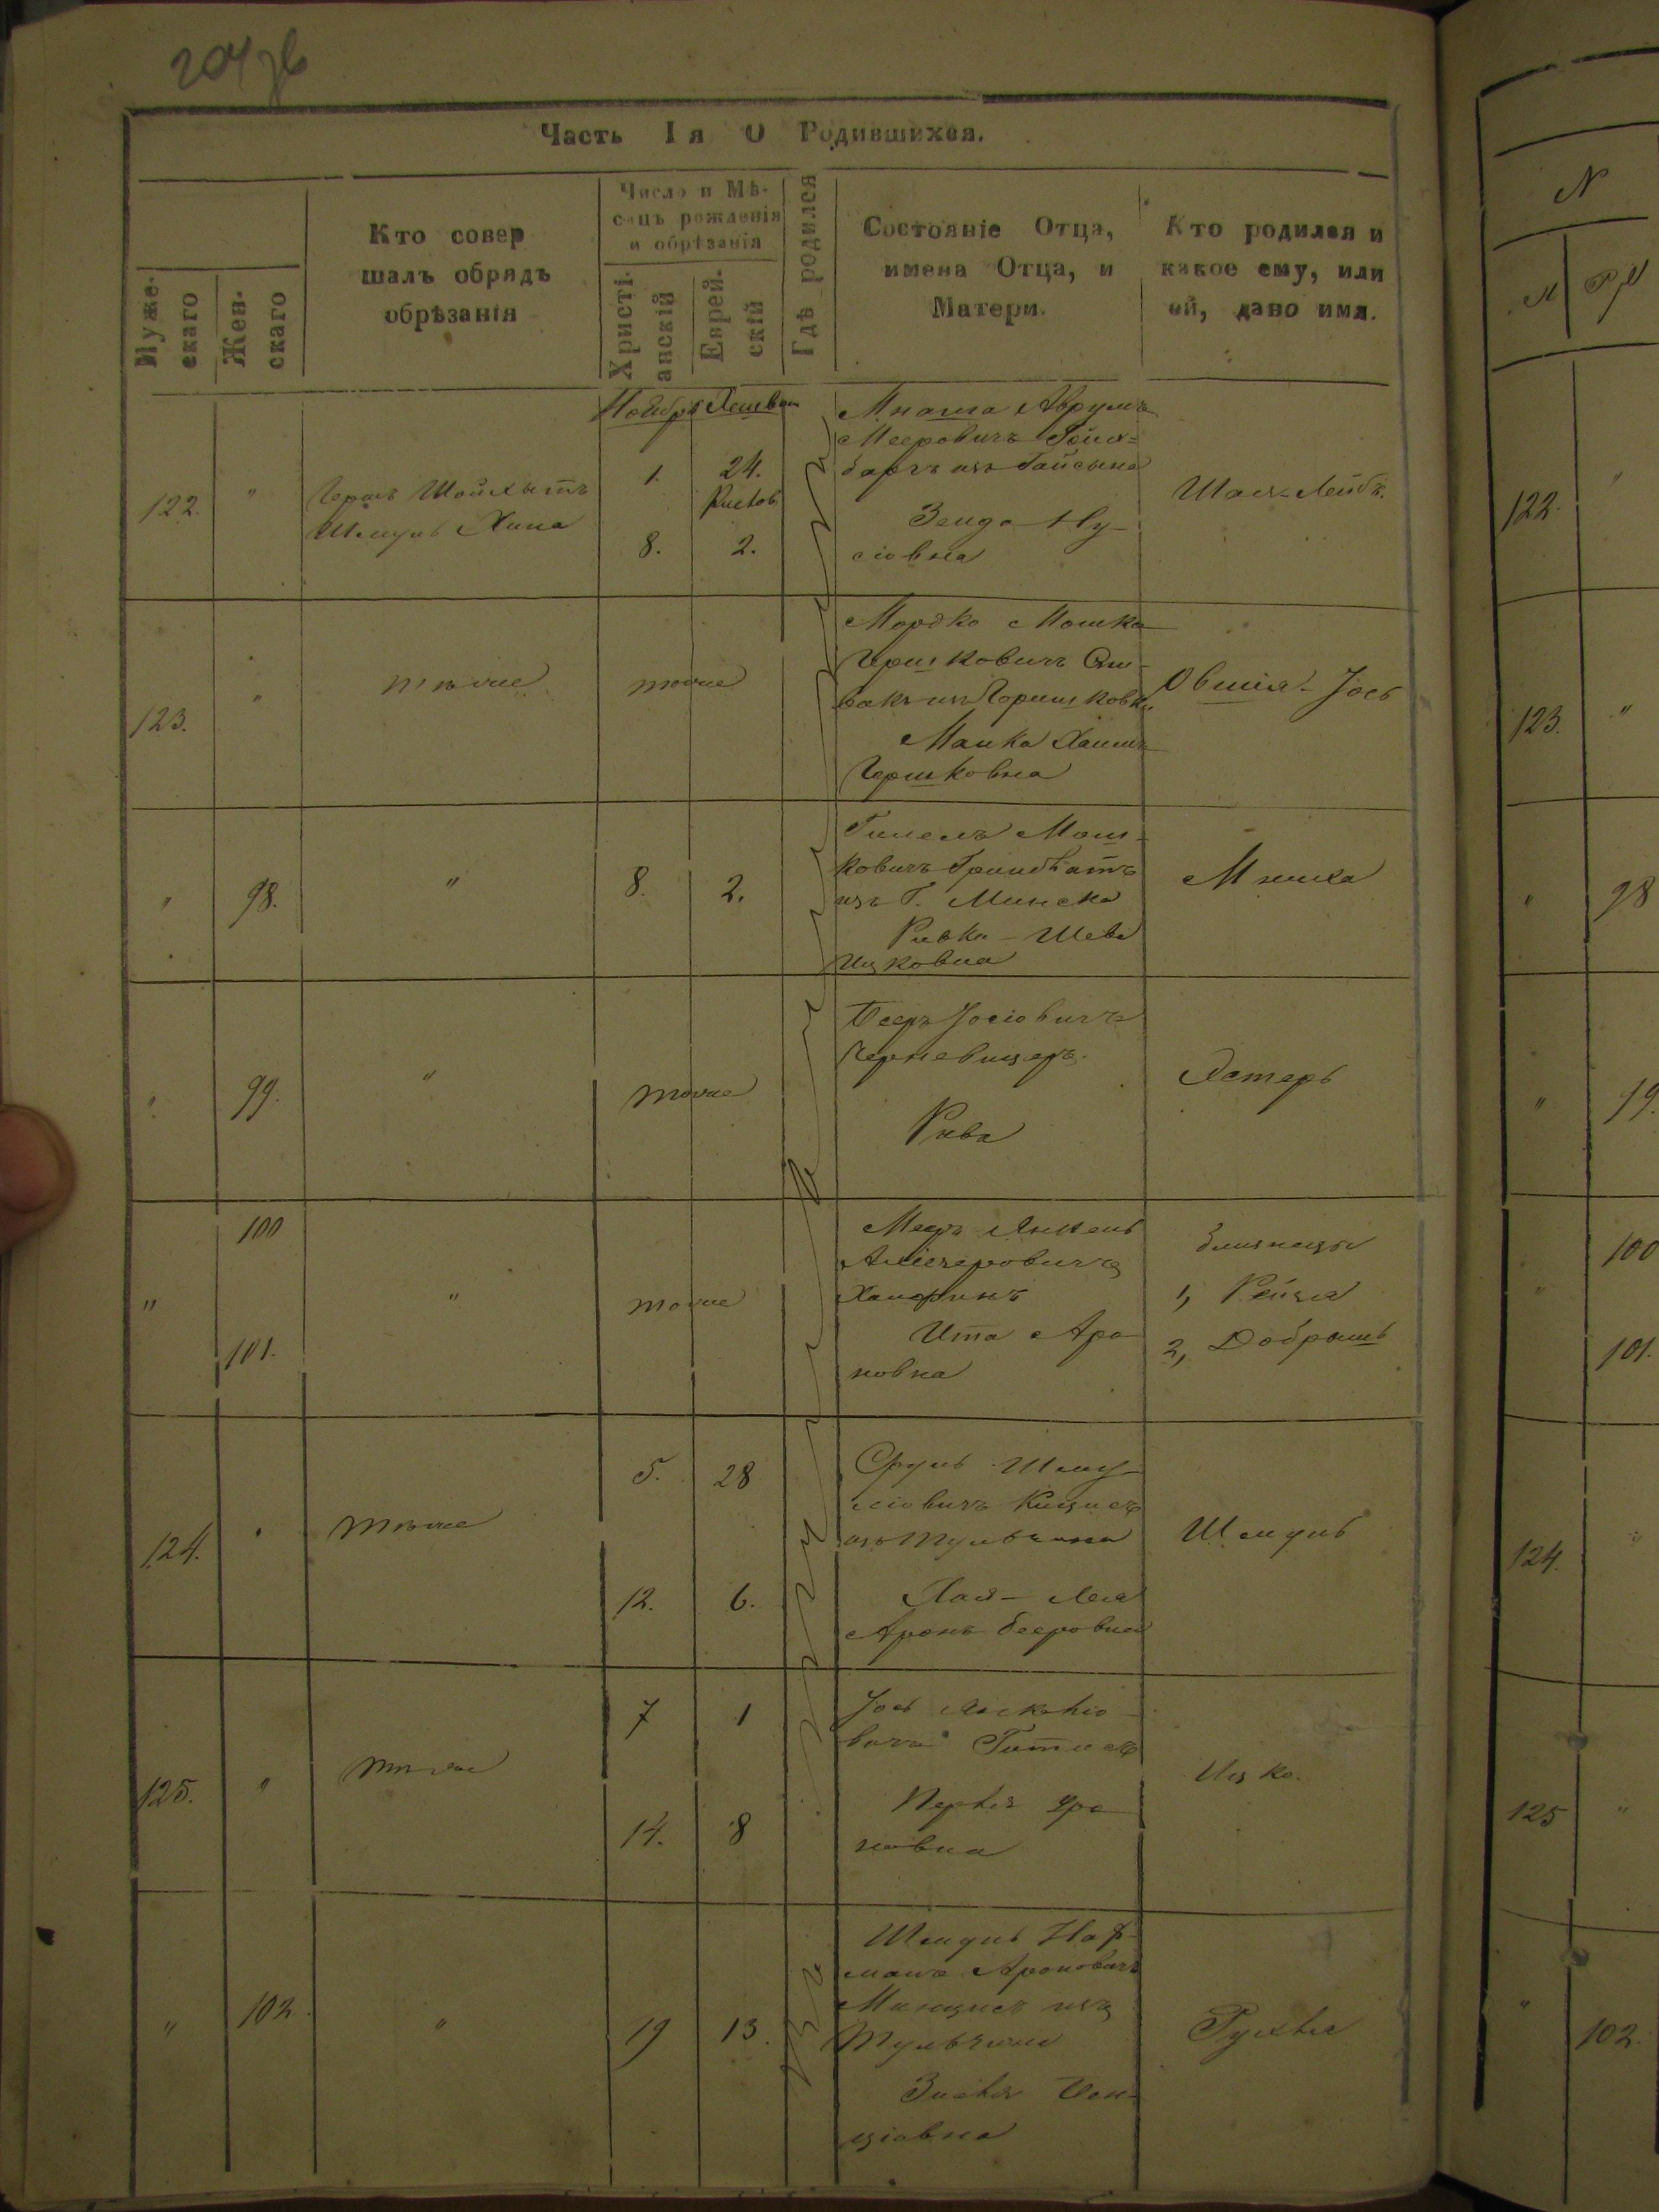 204
Часть Iя О Родившихся.
Мужескаго
Женскаго
Кто совер
шалъ обрядъ
обрѣзанія
Число и Мѣ-
сяцъ рожденія
и обрѣзанія
Христі-
анскій
Еврей-
скій
Гдѣ родился
Состояніе Отца,
имена Отца, и
Матери.
Кто родился и
какое ему, или
ей, дано имя.
Ноябрь
122.
"
Герш Шойхытъ
Шмуль
1.
24.
Кислов
8.
2.
Мнаша Аврумъ
Мееровичъ
из Гайсына
Зелда Ну-
сіовна
Шая-Лейбъ.
123.
"
тоже
тоже
Мордко Мошко
Гершковичъ Спи-
вакъ из Горишковки
Манка Хаимъ
Гершковна
Овшія-Іось
"
98.
"
8.
2.
Гимелъ Мош-
ковичъ Гринблатъ
изъ Г. Минска
Ривка-Шева
Ицковна
Мниха
"
99.
"
тоже
Беръ Іосіовичъ
Черневицеръ.
Рива
Эстеръ
"
100
101.
"
тоже
Меер Янкель
Ита Аро
новна
близнецы
1, Рейзя
2, Добрышь
124.
"
тоже
5.
28
12.
6.
Сруль Шму-
ліовичъ
изъ Тульчина
Хая-Лея
Аронъ Беровна
Шмуль
125.
"
тоже
7
1
14.
8
Іось
вичъ
Перля
новна
Ицко.
"
102.
"
19
13.
Шмуль Наф-
Ароновичъ
изъ
Тульчина
Зисля Бен-
ціовна
Рухля
N
М
122.
"
123.
"
"
98
"
99.
"
100
101.
124.
"
125
"
"
102.